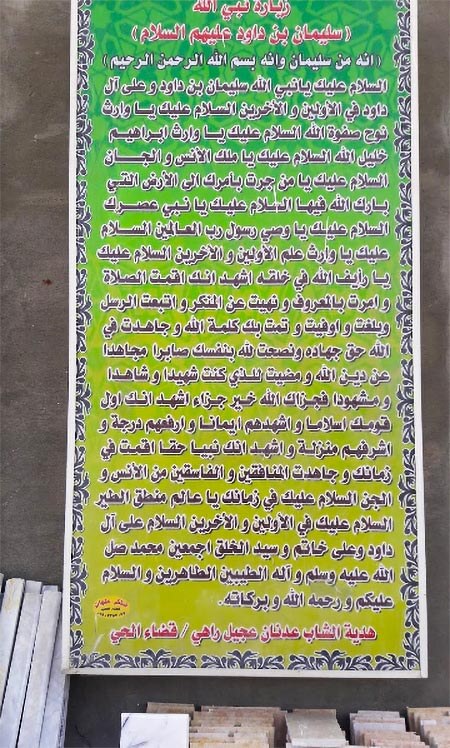 زيارة نبي الله
( سليمان بن داود عليهم السلام )
(انه من سليمان وانه بسم الله الرحمن الرحيم)
السلام عليك يانبي الله سليمان بن داود و على آل
داود في الأولين و الأخرين السلام عليك يا وارث
نوح صفوة الله السلام عليك يا وارث ابراهيم
خليل الله السلام عليك يا ملك الأنس و الجان
السلام عليك يا من جرت بامرك الى الأرض التي
بارك الله فيها السلام عليك يا نبي عصرك
السلام عليك يا وصي رسول رب العالمين السلام
عليك يا وارث علم الأولين و الأخرين السلام عليك
يا رايف الله في خلقه اشهد انك اقمت الصلاة
و امرت بالمعروف و نهيت عن المنكر و اتبعت الرسل
وبلغت و اوفيت و تمت بك كلمة الله و جاهدت في
الله حق جهاده ونصحت لله بنفسك صابرا مجاهدا
عن دين الله و مضيت للذي كنت شهيدا و شاهدا
و مشهودا فجزاك الله خير جزاء اشهد انك اول
قومك اسلاما و اشهدهم ايمانا و ارفعهم درجة و
اشرفهم منزلة و اشهد انك نبيا حقا اقمت في
زمانك و جاهدت المنافقين و الفاسقين من الأنس و
الجن السلام عليك في زمانك يا عالم منطق الطير
السلام عليك في الأولين و الأخرين السلام على آل
داود وعلى خاتم و سيد الخلق اجمعين محمد صل
الله عليه وسلم و آله الطيبين الطاهرين و السلام
عليكم و رحمه الله و بركاته.
هدية الشاب عدنان عجيل راهي / قضاء الحي